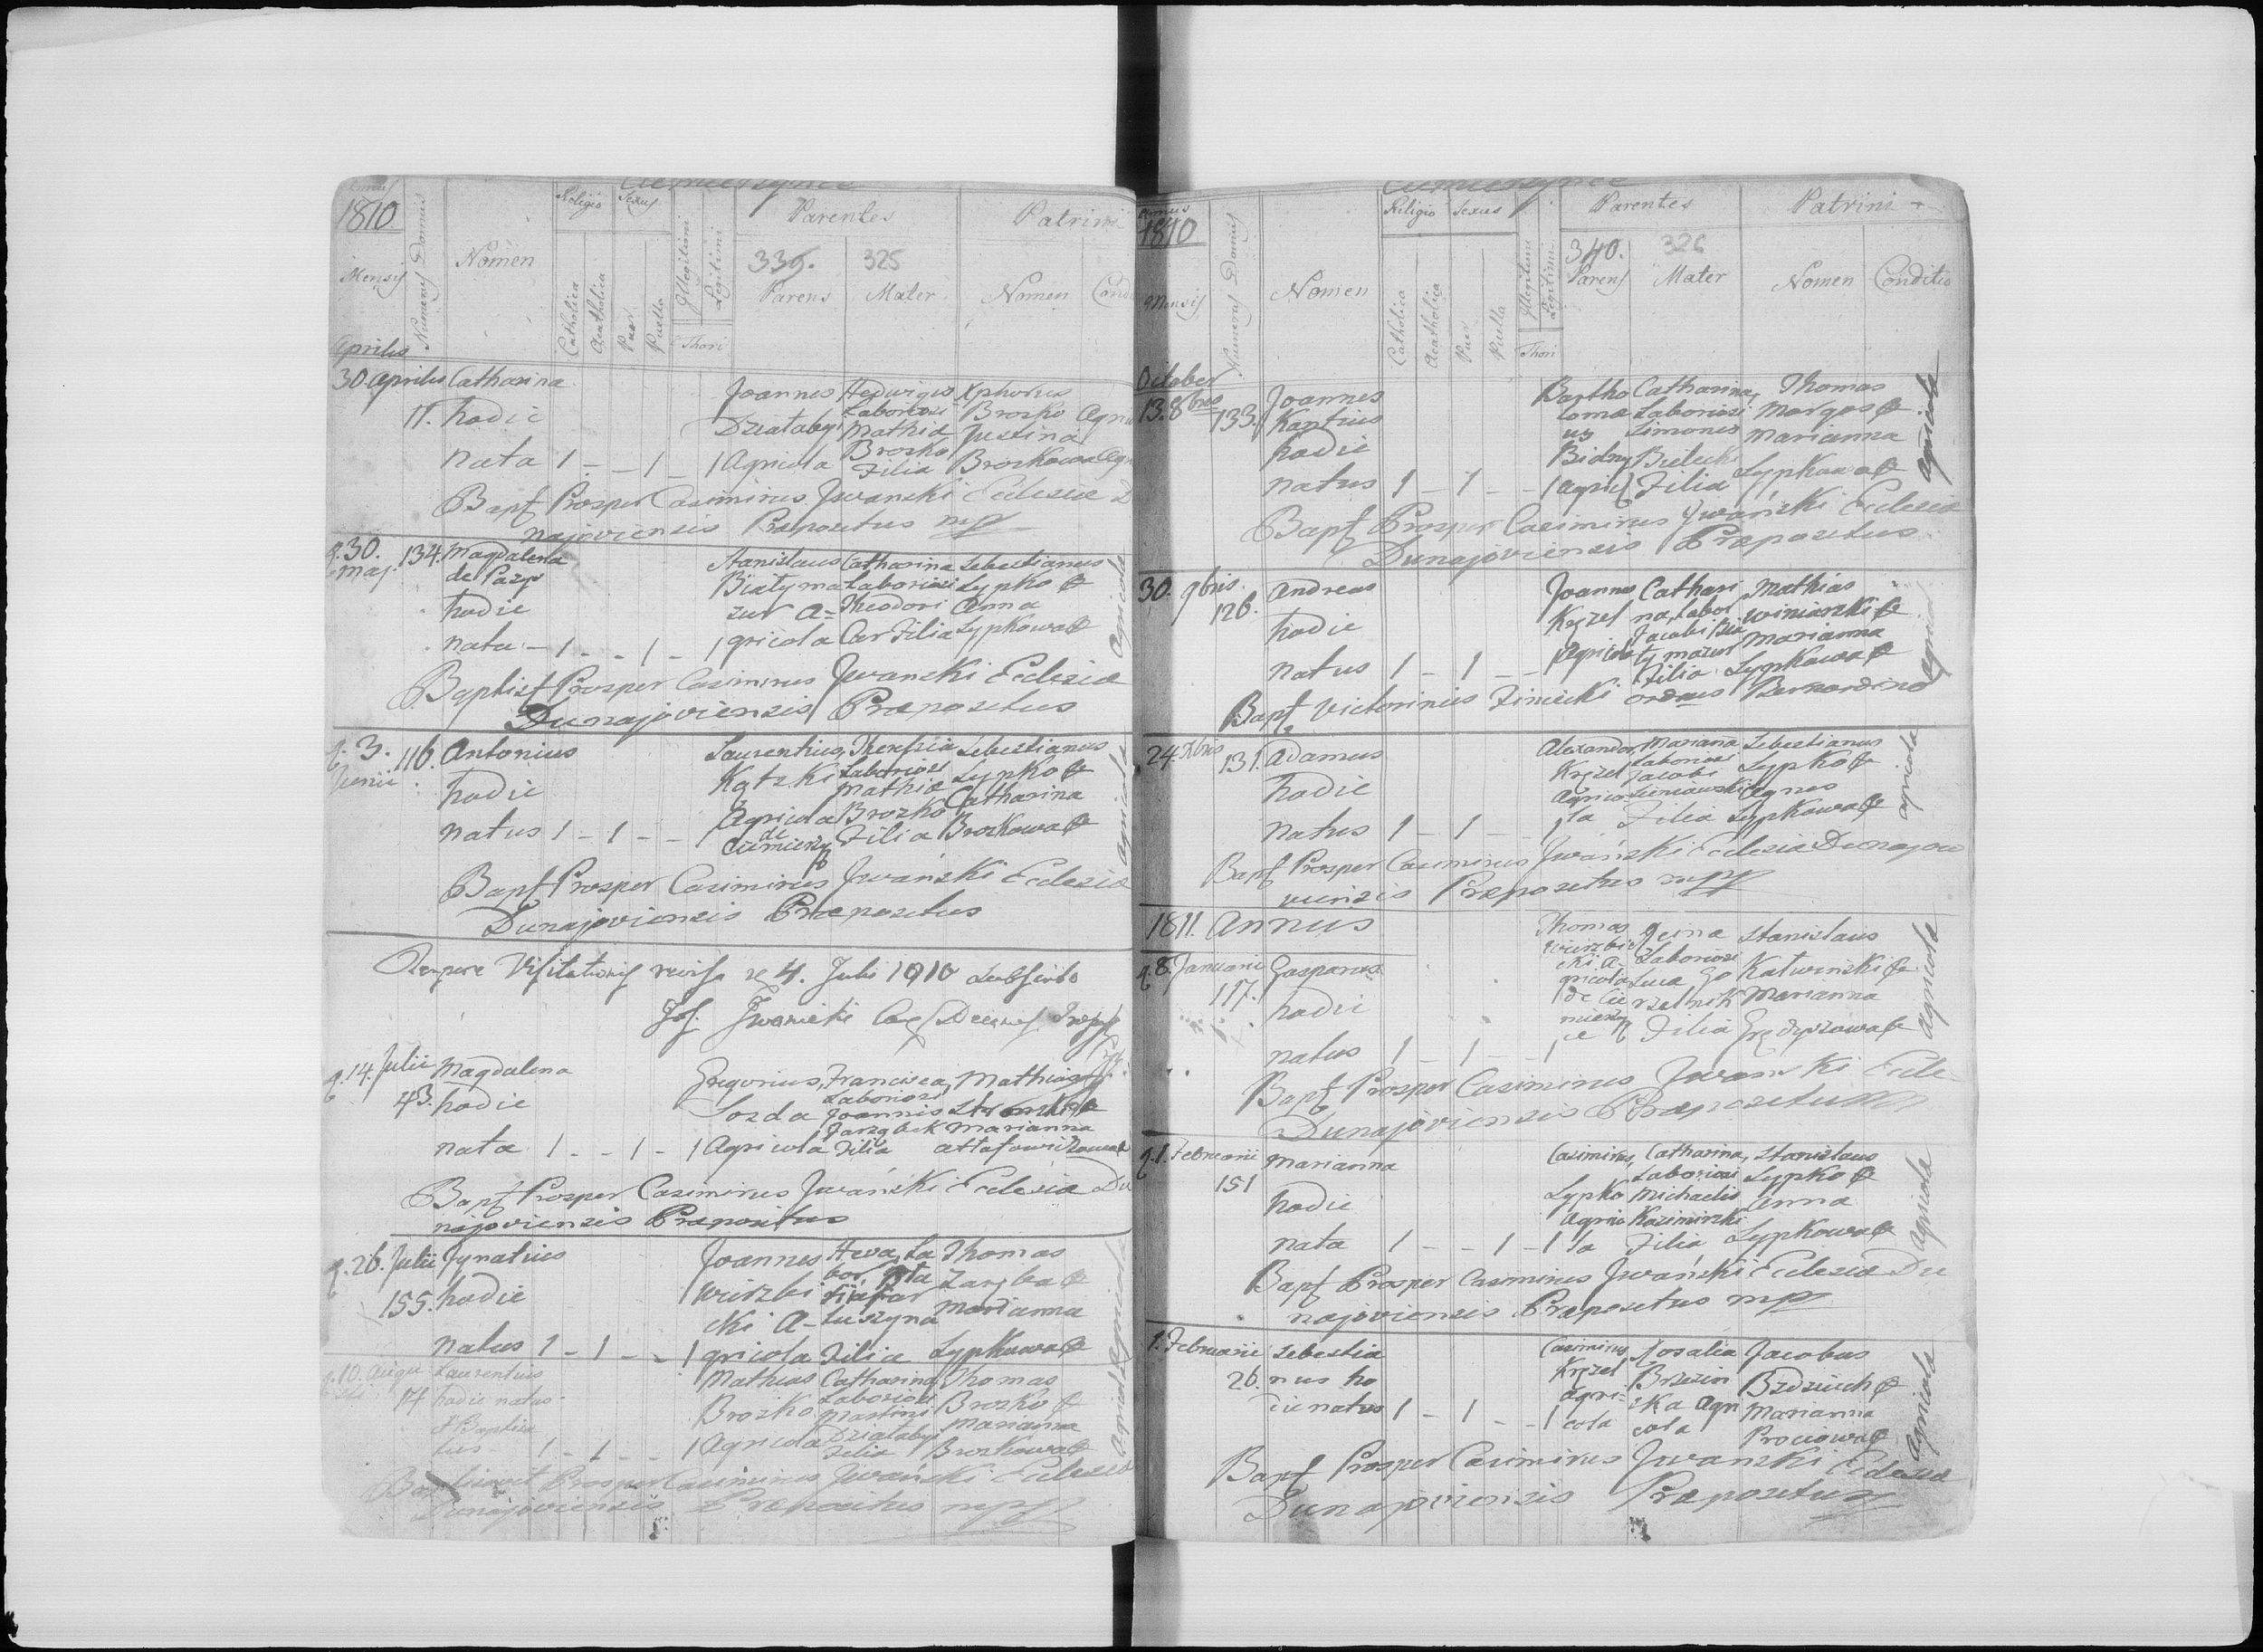 Annus
1810
Mensis
Numerus Domus
Nomen
Religio
Sexus
Catholica
Acatholica
Puer
Puella
Illegitimi
Legitimi
Thori
Parentes
339. 325
Parens Mater
Patrini
Nomen
Aprilis
30 Aprilis Catharina
11. hodie
nata 1 - - 1 - 1
Joannes
Dziatabyi
Agricola
Hedwigis
Laboriosi
Mathiæ
Brozko
Filia
Xphorus
Brozko
Justina
Brozkowa
Bapt Prosper Casimirus Jwanski Eclesiæ D
najoviensis Præpositus mpp
q. 30.
Maj.
134. Magdalena
de Pazp
hodie
nata - 1 - - 1 - 1
Stanislaus
Biatyma
zur A=
gricola
Catharina
Laboriosi
Theodori
Car Filia
Sebestianus
Lypko &
Anna
Lypkowa &
Agricola
Baptist Prosper Casimirus Jwanski Eclesiæ
Dunajoviensis Præpositus
q. 3.
Junii
116. Antonius
hodie
natus 1 - 1 - - 1
Laurentius
Kątzki
Agricola
de
Ciemierzy
Therefsia
Laboriosi
Mathiæ
Brozko
Filia
Sebestianus
Lypko &
Catharina
Brozkowa &
Agricola
Bapt Prosper Casimirus Jwański Eclesiæ
Dunajoviensis Præpositus
Tempore Visitationis revisa 4. Julii 1810
q. 14. Julii Magdalena
43. hodie
nata 1 - - 1 - 1
Gregorius,
Sozda
Agricola
Francisca,
Laboriosi
Joannis
Jarząbek
Filia
Mathias
Marianna
Bapt Prosper Casimirus Jwański Eclesiæ Du
najoviensis Præpositus
q. 26. Julii Jgnatius
155. hodie
natus 1 - 1 - - 1
Joannes
Wirzbi
cki A-
gricola
Heva, La
Filia
Thomas
Zaręba &
Marianna
Lypkowa &
q. 10. Augu
Laurentius
14 hodie natus
& Baptisa
tus - 1 - 1 - - 1
Mathias
Brozko
Agricola
Catharina
Laboriosi
Martini
Dziatabyi
Filia
Thomas
Brozko &
Marianna
Brozkowa &
Agricola
Baptisavit Prosper Casimirus Jwański Eclesiæ
Dunajoviensis Præpositus mpp
Annus
1810
Mensis
Numerus Domus
Nomen
Religio
Sexus
Catholica
Acatholica
Puer
Puella
Illegitimi
Legitimi
Thori
Parentes
340. 326
Parens Mater
Patrini
Nomen Conditio
October
13. 8bris
133. Joannes
Kantius
hodie
natus 1 - 1 - - 1
Bartho
lomæ
us
Bidny
Agric
Catharina,
Laboriosi
Simonis
Bielecki
Filia
Thomas
Margos &
Marianna
Lypkowa &
Agricola
Bapt Prosper Casimirus Jwański Eclesiæ
Dunajoviensis Præpositus
30. 9bris.
126. Andreas
hodie
natus 1 - 1 - - 1
Joannes
Kręzel
Agricola
Cathari
na, Labor
Jacobi Bia
ty mazur
Filia
Mathias
Winiarzki &
Marianna
Lypkowa &
Agricol
Bapt Victorinus Finicki Bernardino
24. Xbris
131. Adamus
hodie
natus 1 - 1 - - 1
Alexander
Kręzel
Agrico
la
Marianna
Laboriosi
Jacobi
Filia
Sebestianus
Lypko &
Agnes
Lypkowa &
Agricola
Bapt Prosper Casimirus Jwański Eclesiæ Dunajow
viensis Præpositus mpp
1811. Annus
q. 8. Januarii Gasparus
117. hodie
natus 1 - 1 - - 1
Thomas
Wirzbic
cki A-
gricola
de Cie
mierzy
ce
Laboriosi
Lucæ Go
rzelnik
Filia
Stanislaus
Katwinski &
Marianna
Agricola
Bapt Prosper Casimirus Jwanski Ecle
Dunajoviensis Præpositus
q. 1. Februarii Marianna
151
hodie
nata 1 - - 1 - 1
Casimirus,
Lypko
Agrico
la
Catharina,
Laboriosi
Michaelis
Kazimirzki
Filia
Stanislaus
Lypko &
Anna
Lypkowa &
Agricola
Bapt Prosper Casimirus Jwański Eclesiæ Du
najoviensis Præpositus mpp
1. Februarii Sebestia
26. nus ho
die natus 1 - 1 - - 1
Casimirus
Kręzel
Agri-
cola
Rosalia
Brzezin
zka Agri
cola
Jacobus
Bzdziuch &
Marianna
Prociowa &
Agricola
Bapt Prosper Casimirus Jwanski Eclesiæ
Dunajoviensis Præpositus